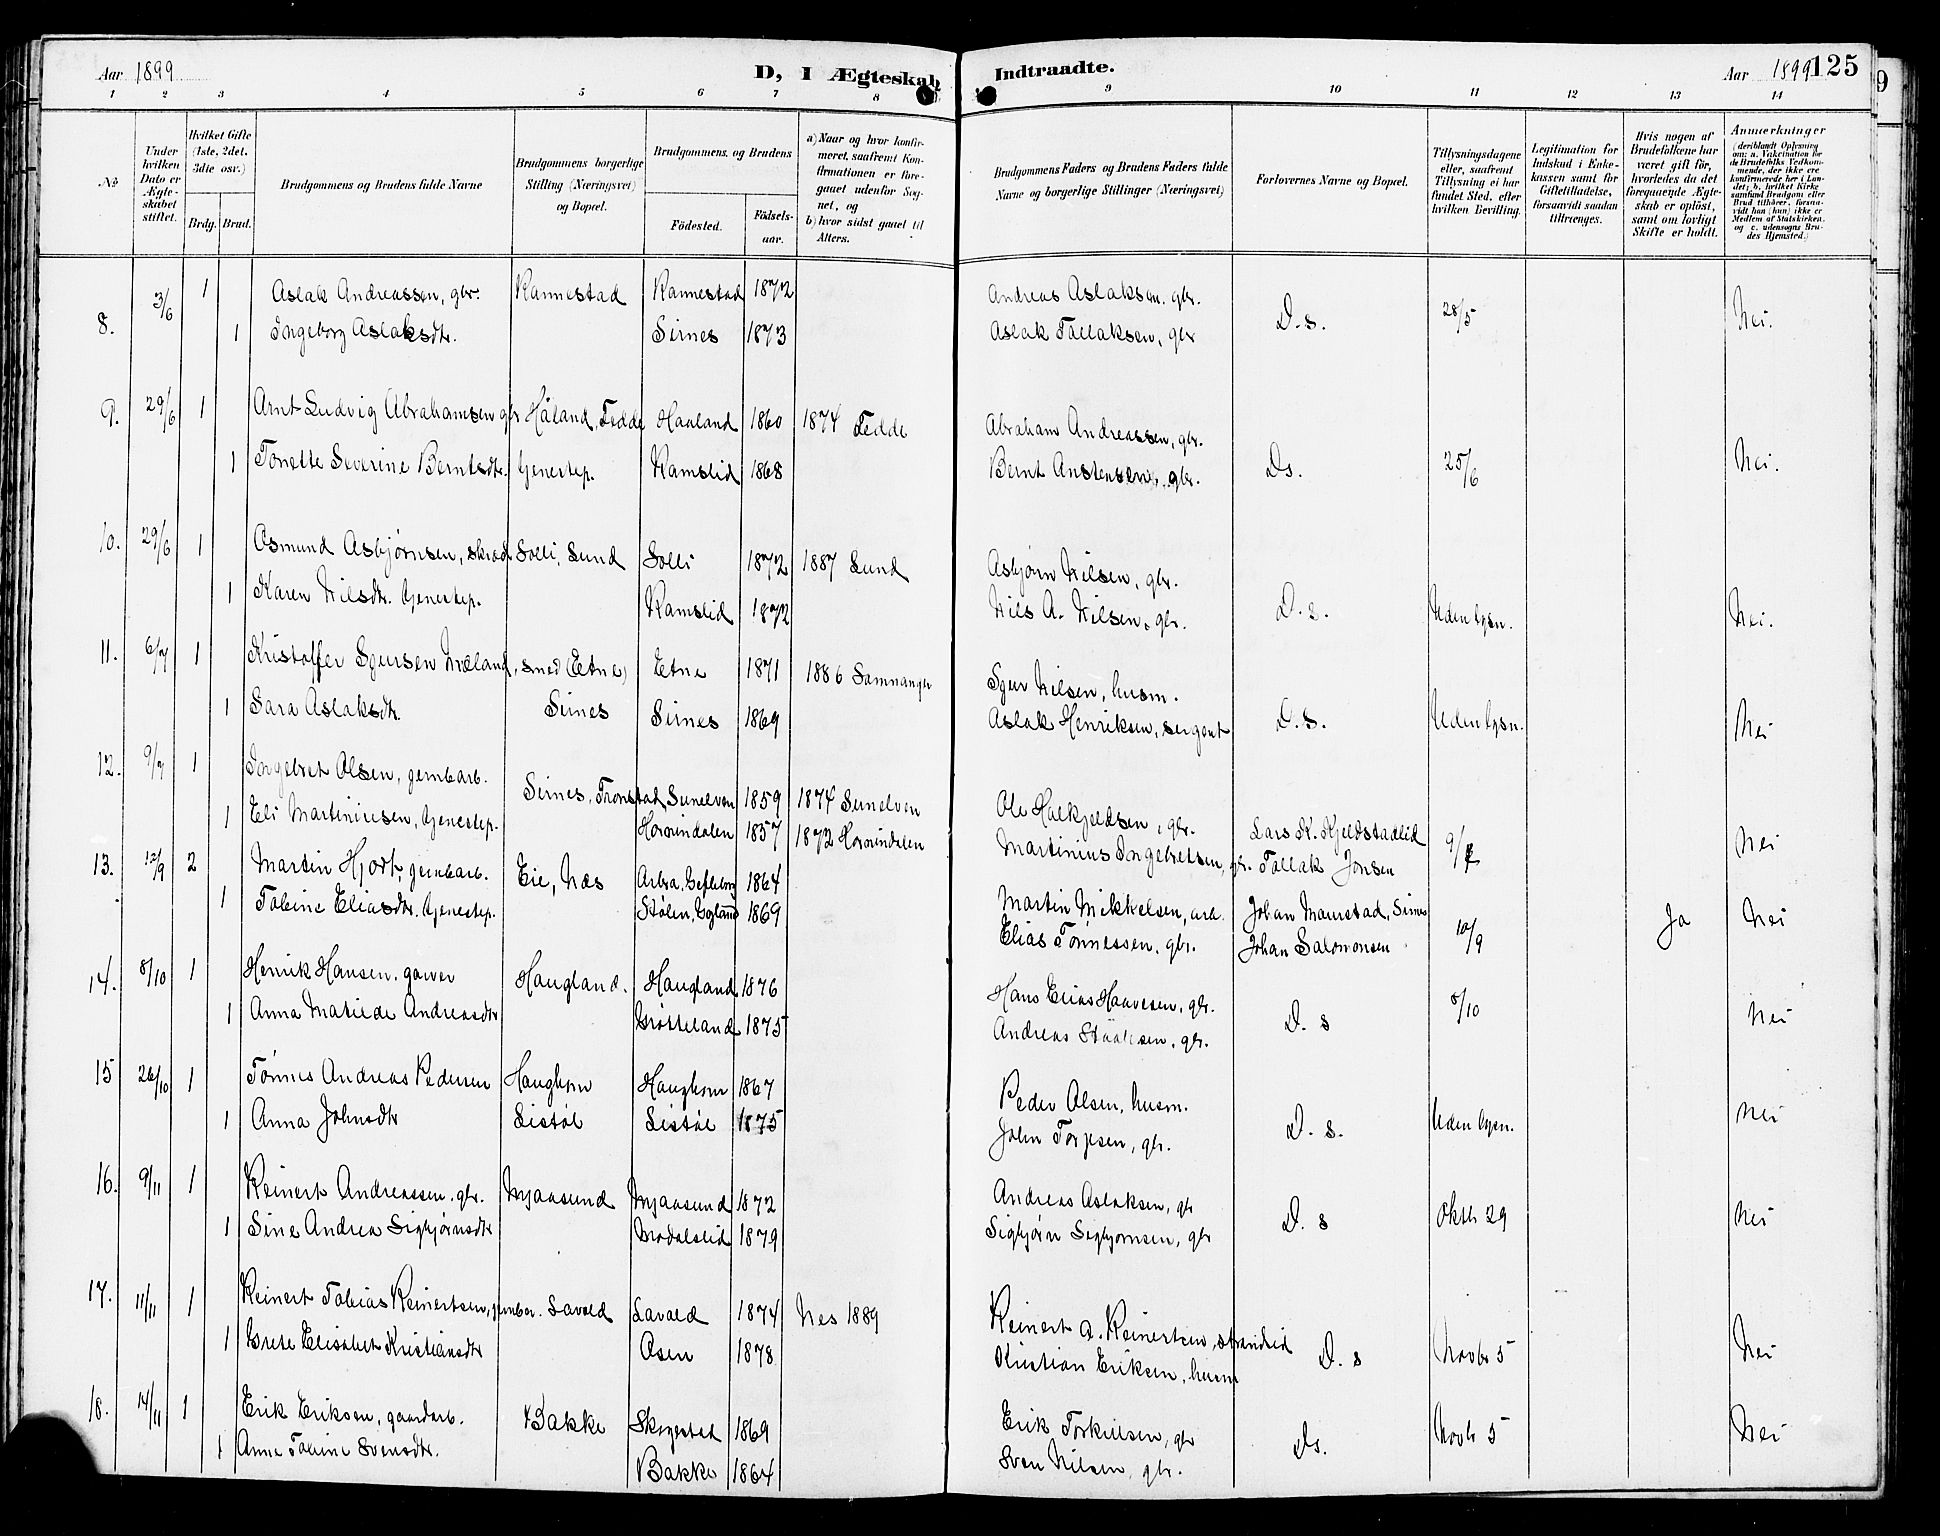 Aar 1899
D, I Ægteskab Indtraadte.
Aar 1899 125
1 2 3 4 5 6 7 8 9 10 11 12 13 14
No.
Under hvilken Dato er Ægteskabet stiftet.
Hvilket Gifte (1ste, 2det, 3die osv.)
Brdg. Brud.
Brudgommens og Brudens fulde Navne
Brudgommens borgerlige Stilling (Næringsvei) og Bopæl.
Brudgommens og Brudens
Födested. Födsels-aar.
a) Naar og hvor konfirmeret, saafremt Konfirmationen er foregaaet udenfor Sognet, og
b) hvor sidst gaaet til Alters.
Brudgommens Faders og Brudens Faders fulde Navne og borgerlige Stillinger (Næringsvei)
Forlovernes Navne og Bopæl.
Tillysningsdagene eller, saafremt Tillysning ei har fundet Sted, efter hvilken Bevilling.
Legitimation for Indskud i Enkekassen samt for Giftetilladelse, forsaavidt saadan tiltrænges.
Hvis nogen af Brudefolkene har været gift før, hvorledes da det foregaaende Ægteskab er opløst, samt om lovligt Skifte er holdt.
Anmærkninger (deriblandt Oplysning om: a. Vakcination for de Brudefolks Vedkommende, der ikke ere konfirmerede her i Landet; b. hvilket Kirkesamfund Brudgom eller Brud tilhører, forsaavidt han (hun) ikke er Medlem af Statskirken, og c. udensogns Brudes Hjemsted.)
8. 3/6 1 Aslak Andreassen, gbr. Rannestad Rannestad 1872 Andreas Aslaksen, gbr. D. s. 28/5 Nei.
1 Ingeborg Aslaksdtr. Sirnes 1873 Aslak Tallaksen, gbr
9. 29/6 1 Arnt Ludvig Abrahamsen gbr Håland, Fedde Haaland 1860 1874 Fedde Abraham Andreassen, gbr. Ds. 25/6 Nei.
1 Tonette Severine Berntsdtr. tjenestep. Ramslid 1868 Bernt Anstensen, gbr.
10. 29/6 1 Osmund Asbjørnsen, skræd. Solli, Lund Solli 1872 1887 Lund Asbjørn Nilsen, gbr. D. s. Uden lysn. Nei.
1 Karen Nilsdtr. tjenestep. Ramslid 1872 Nils A. Nilsen, gbr.
11. 6/7 1 Kristoffer Sjursen Mæland, smed (Etne) Etne 1871 1886 Samnanger Sjur Nilsen, husm. D. s. Uden lysn. Nei
1 Sara Aslaksdtr. Sirnes Sirnes 1869 Aslak Henriksen, sergent
12. 9/7 1 Ingebret Olsen, jernbarb. Sirnes, Tronstad Sunelven 1859 1874 Sunelven Ole Halkjeldsen, gbr. Lars K. Kjeldstadlid 9/7 Nei
1 Eli Martiniusen, tjenestep. Hornindalen 1857 1872 Hornindalen Martinius Ingebretsen, gbr. Tallak Jonsen
13. 12/9 2 Martin Hjort, jernbarb. Eie, Næs Arbra, Gefleborg 1864 Martin Mikkelsen, arb. Johan Maurstad, Sirnes 10/9 Ja Nei
1 Tobine Eliasdtr. tjenestep. Stølen, Egland 1869 Elias Tønnessen, gbr. Johan Salomonsen
14. 8/10 1 Henrik Hansen, garver Haugland. Haugland 1876 Hans Elias Haavesen, gbr. D. s 8/10 Nei
1 Anna Matilde Andreasdtr Grøtteland 1875 Andreas Staalesen, gbr.
15 26/10 1 Tønnes Andreas Pedersen Haughom Haughom 1867 Peder Olsen, husm. D. s. Uden lysn. Nei
1 Anna Johnsdtr Listøl Listøl 1875 John Torjesen, gbr.
16. 9/11 1 Reinert Andreassen, gbr. Mjaasund Mjaasund 1872 Andreas Aslaksen, gbr D. s Oktb 29 Nei
1 Sine Andrea Sigbjørnsdtr Modalslid 1879 Sigbjørn Sigbjørnsen, gbr
17. 11/11 1 Reinert Tobias Reinertsen, jernbar. Lavold Lavold 1874 Nes 1889 Reinert A. Reinertsen, strandsid D. s Novbr 5 Nei
1 Grete Elisabet Kristiansdtr Osen 1878 Kristian Eriksen, husm
18. 14/11 1 Erik Eriksen, gaardarb. Bakke Skogestad 1869 Erik Torkildsen, gbr Ds. Novbr 5 Nei
1 Anne Tobine Svensdtr. Bakke 1864 Sven Nilsen, gbr.